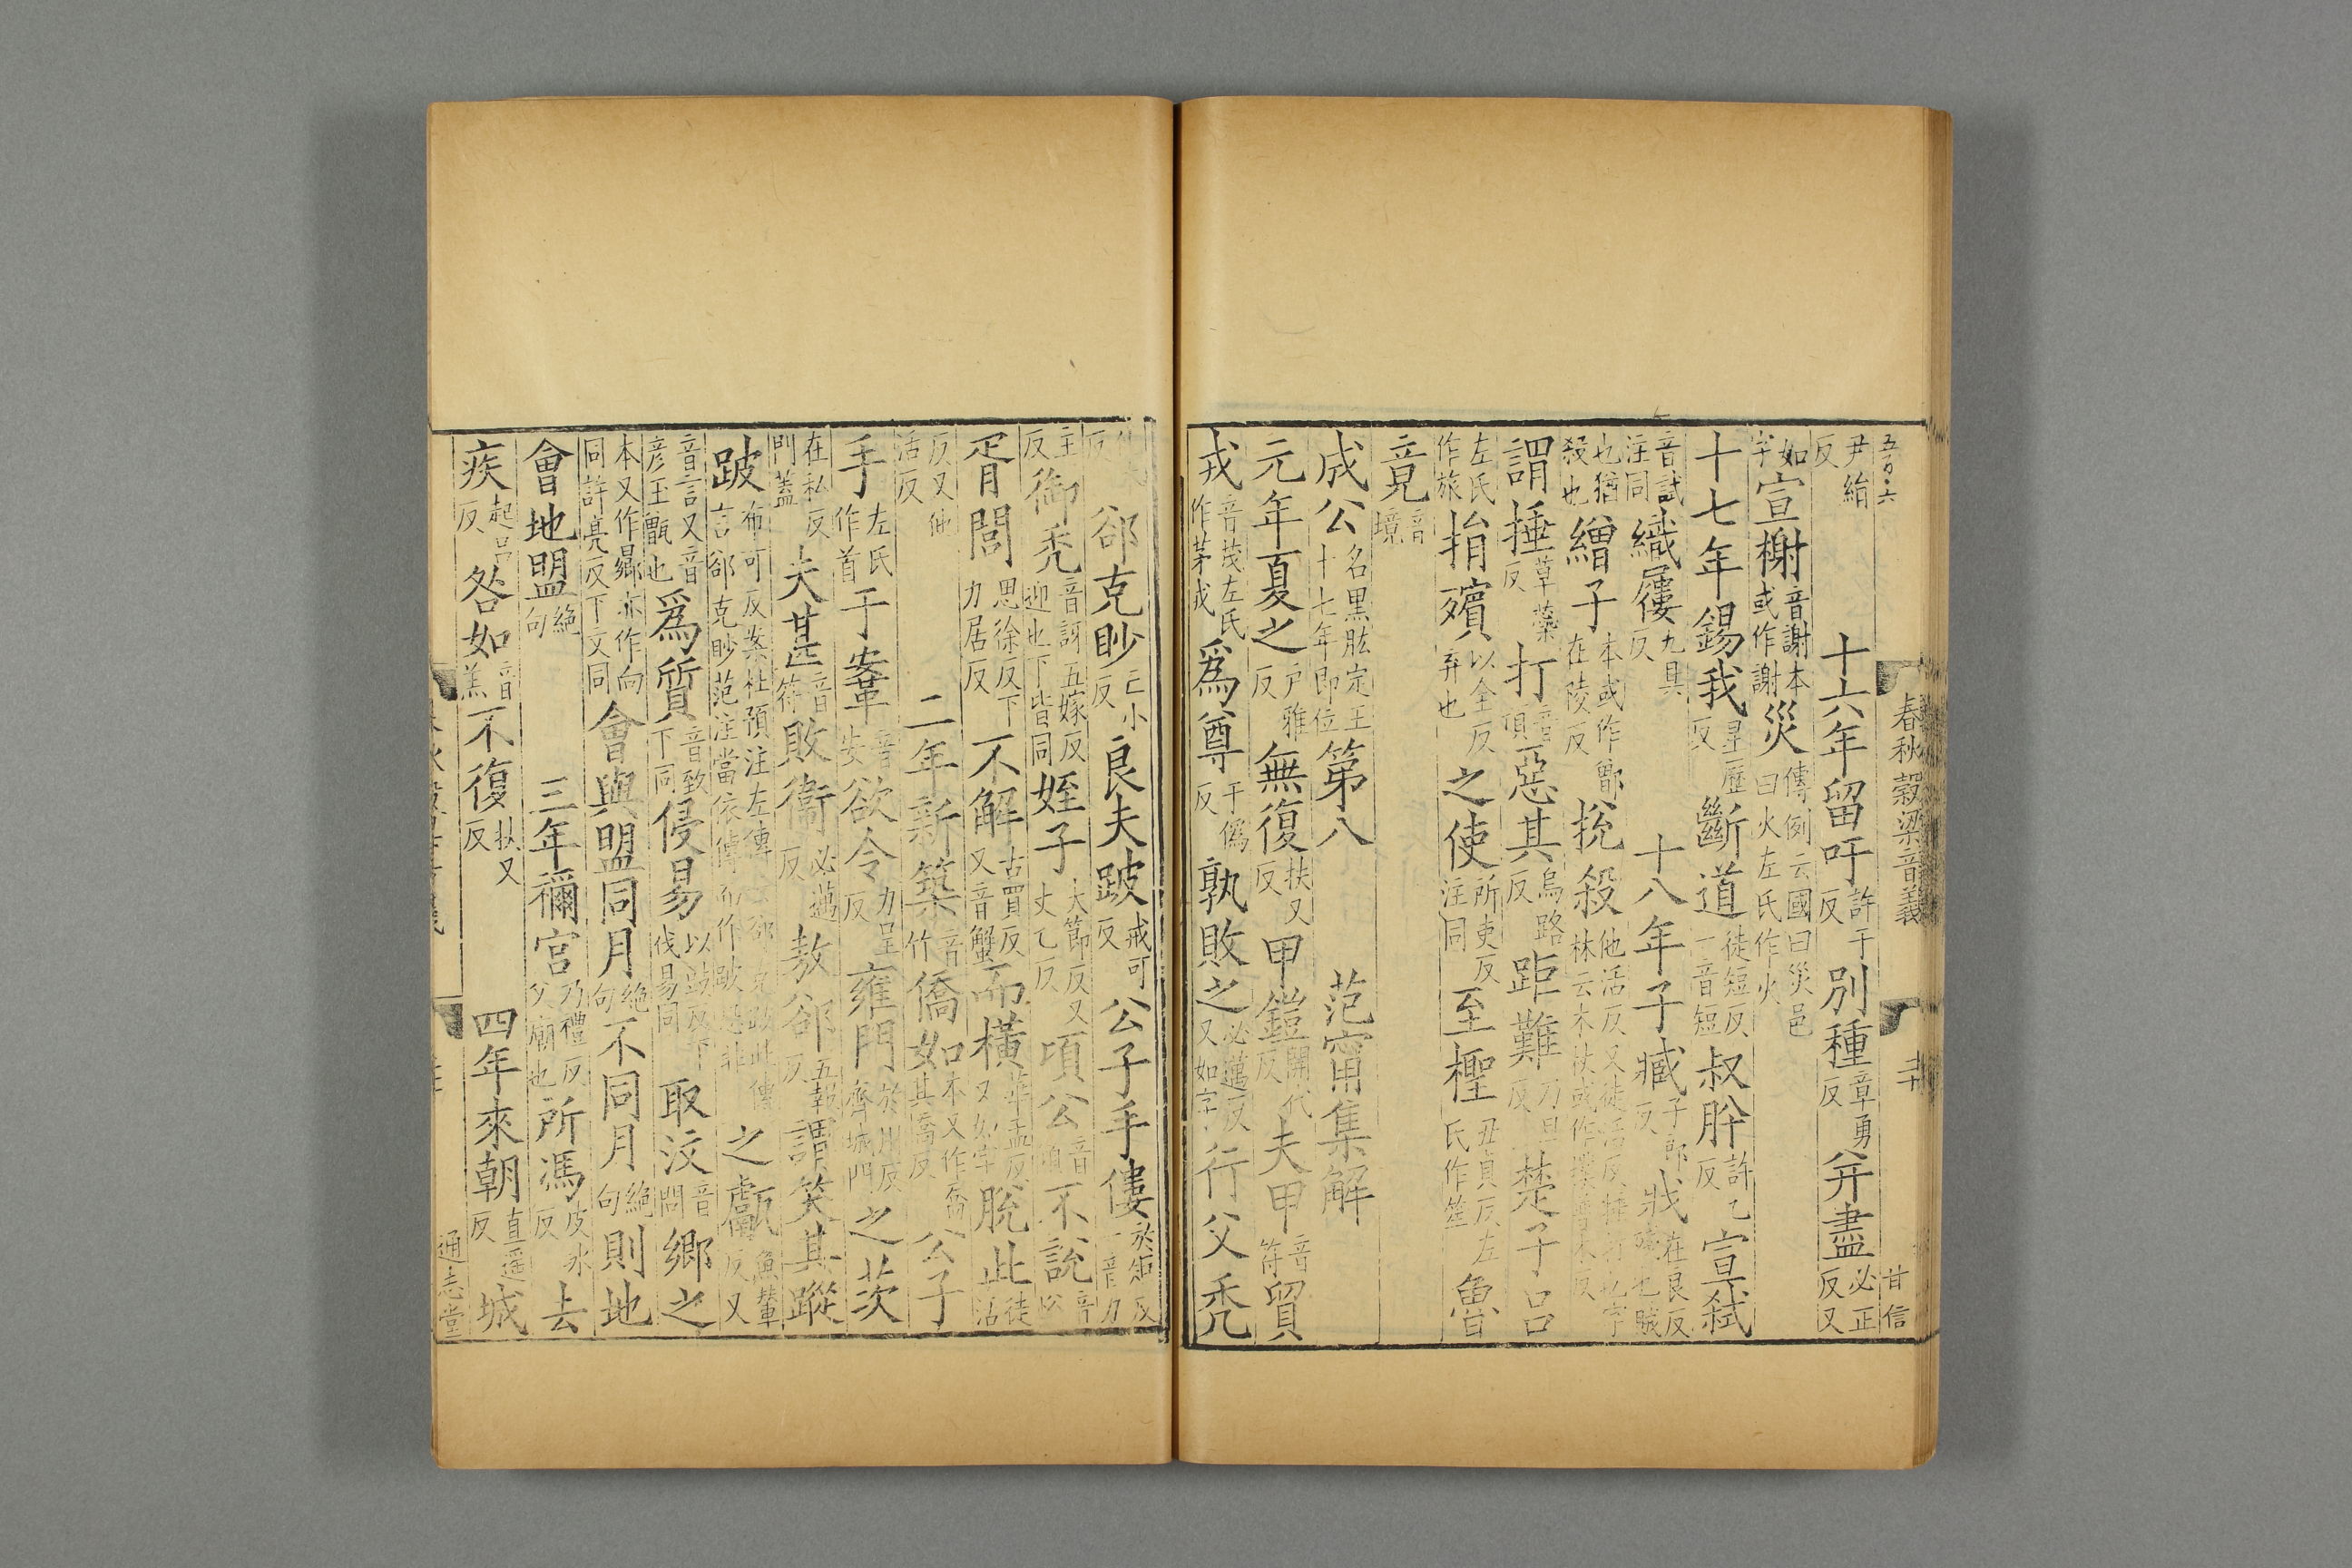 春秋穀梁音義
甘信
尹絹反 十六年留吁許于反別種章勇反并盡必正反又
如字宣榭音謝本或作謝災傳例云國曰災邑曰火左氏作火
十七年錫我星歷反斷道徒短反一音短叔肸許乙反宣弑
音試注同織屨九具反 十八年子臧子郎反戕在良反殘也賊
也猶殺也繒子本或作鄫在陵反挩殺他活反又徒活反捶打也字林云木杖或作
謂捶草蘂反打音頂惡其烏路反距難乃旦反楚子呂
左氏作旅捐殯以全反弃也之使所吏反注同至檉丑貞反左氏作笙魯
竟音境
成公名黑肱定王十七年即位第八 范甯集解
元年夏之戶雅反無復扶又反甲鎧開代反夫甲音符貿
戎音茂左氏作茅戎爲尊于僞反孰敗之必邁反又如字行父禿
反 郤克眇亡小反良夫跛戒可反公子手僂於矩反一音力
主反御禿音訝五嫁反迎也下皆同姪子大節反又丈乙反項公音頃不說音悅
胥閭思徐反下力居反不解古買反又音蟹而橫華孟反又如字脫此徒活
反又他活反 二年新築音竹僑如本又作喬其喬反公子
手左氏作首于鞌音安欲令力呈反雍門於用反齊城門之茨
在私反門蓋夫甚音符敗衛必邁反敖郤五報反謂笑其蹤
跛布可反案杜預注左傳言郤克跛此傳言郤克眇范注當依傳而作跛恐非之甗魚輦反又
音言又音彥玉甑也爲質音致下同侵易以豉反下伐易同取汶音問鄉之
本又作曏亦作向同許亮反下文同會與盟同月絕句不同月絕句則地
會地盟絕句 三年禰宮乃禮反父廟也所馮皮冰反去
疾起呂反咎如音羔不復扶又反 四年來朝直遥反城
通志堂